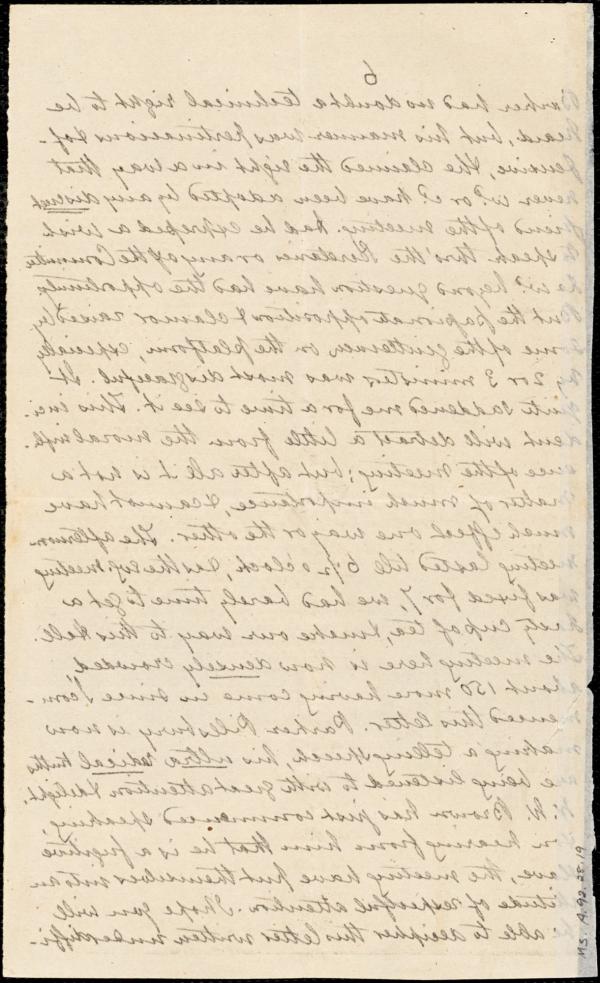 6
Parker had no doubt a technical right to be
heard, but his manner was pertinacious & of-
fensive, & he claimed the right in a way that
never wd. or cd. have been adopted by any distinct
friend of the meeting. Had he expressed a wish
to speak thro' the President or any of the Committee
he wd. beyond question have had the opportunity.
But the passionate opposition & clamor raised by
some of the gentlemen on the platform, especially
by 2 or 3 ministers was most disgraceful. It
quite saddened me for a time to see it. This inci-
dent will detract a little from the moral infl-
uence of the meeting; but after all it is not a
matter of much importance, & cannot have
much effect one way or the other. The afternoon
meeting lasted till 6 1/2 o'clock, & as the eveg meeting
was fixed for 7, we had barely time to get a
hasty cup of tea, & make our way to this Hall.
The meeting here is now densely crowded
about 150 more having come in since I com-
menced this letter. Parker Pillsbury is now
making a telling speech, his ultra radical truths
are being listened to with great attention & delight.
W. Brown has just commenced speaking,
on hearing from him that he is a fugitive
slave, the meeting have put themselves into an
attitude of respectful attention. I hope you will
be able to decipher this letter written under diffi-
MS. A.9.2.28.19